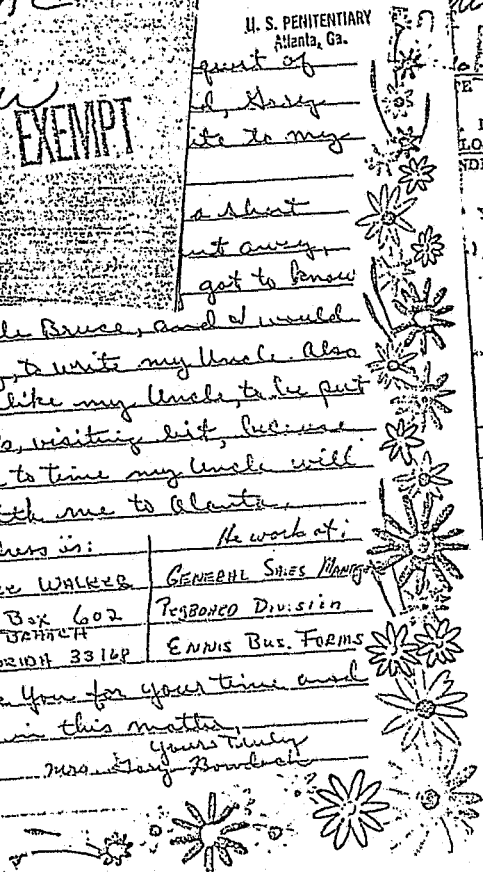 U. S. PENITENTIARY
Atlanta, Ga.
EXEMPT
quest of
d, Gary
ite to my
a short
ut away,
got to know
le Bruce, and I would
, to write my Uncle. Also
like my Uncle, to be put
s, visiting list, because
to time my Uncle will
ith me to Atlanta,
dress is:
He work at:
WALKER
GENERAL SALES MANGER
Box 602
Division
BRANCH
ENNIS BUS. FORMS
ORIDA 33168
k You for your time and
in this matter,
Yours Truly
Mrs. Gary Bowdach